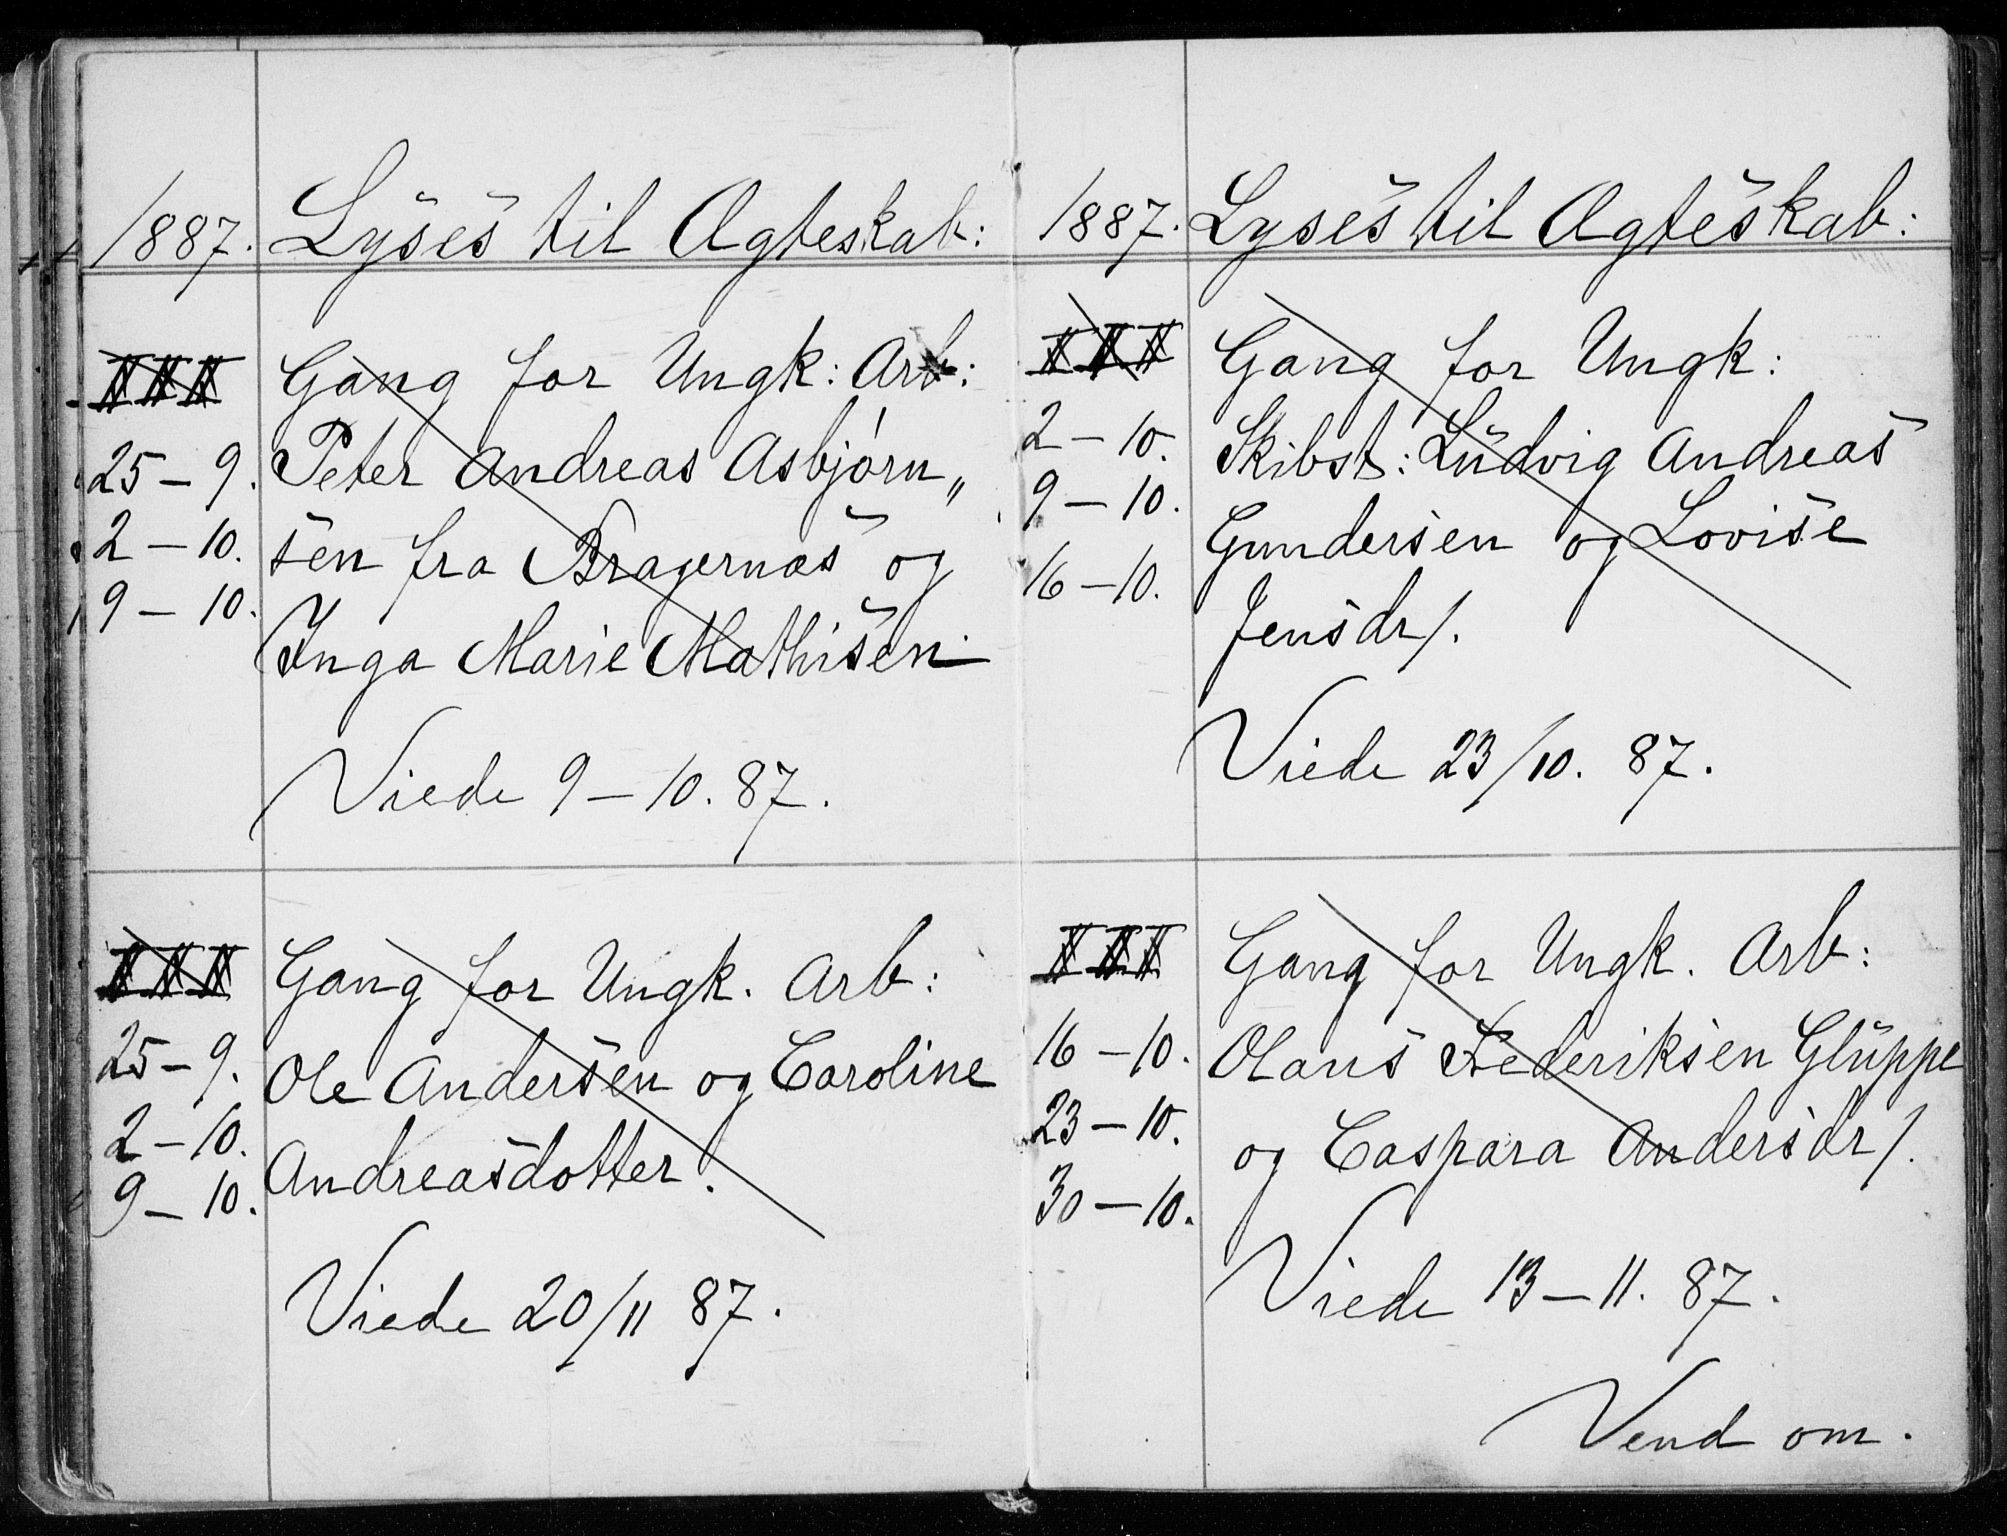 1887. Lyses til Ægteskab:
III Gang for Ungk: Arb:
25 – 9. Peter Andreas Asbjørn„
2 – 10. sen fra Bragernæs og
9 – 10. Inga Marie Mathisen.
Viede 9 – 10. 87.
III Gang for Ungk. Arb:
25 – 9. Ole Andersen og Caroline
2 – 10. Andreasdotter.
9 – 10.
Viede 20/11 87.
1887. Lyses til Ægteskab:
III Gang for Ungk:
2 – 10. Skibst: Ludvig Andreas
9 – 10. Gundersen og Lovise
16 – 10. Jensdr/.
Viede 23/10. 87.
III Gang for Ungk. Arb:
16 – 10. Olaus Federiksen Gluppe
23 – 10. og Caspara Andersdr/.
30 – 10.
Viede 13 – 11. 87.
Vend om.